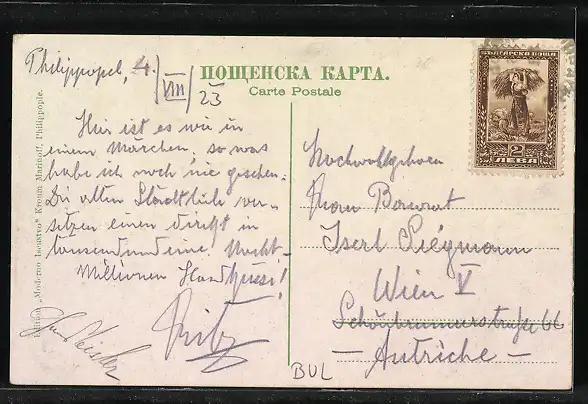 Philippopel, 4./VIII/23
ПОЩЕНСКА КАРТА.
Carte Postale
БЪЛГАРСКА ПОЩА
2
ЛЕВА
Hier ist es wie in
einem Märchen, so was
habe ich noch nie gesehen.
Die alten Stadtteile ver-
setzen einen direkt in
tausendundeine Nacht
Millionen Handküsse!
Fritz
Hochwohlgeboren
Frau Baurat
Wien V
Schönbrunnerstraße 66
- Autriche -
BUL
Edition „Moderno Iscustvo" Kroum Marinoff, Philippople.